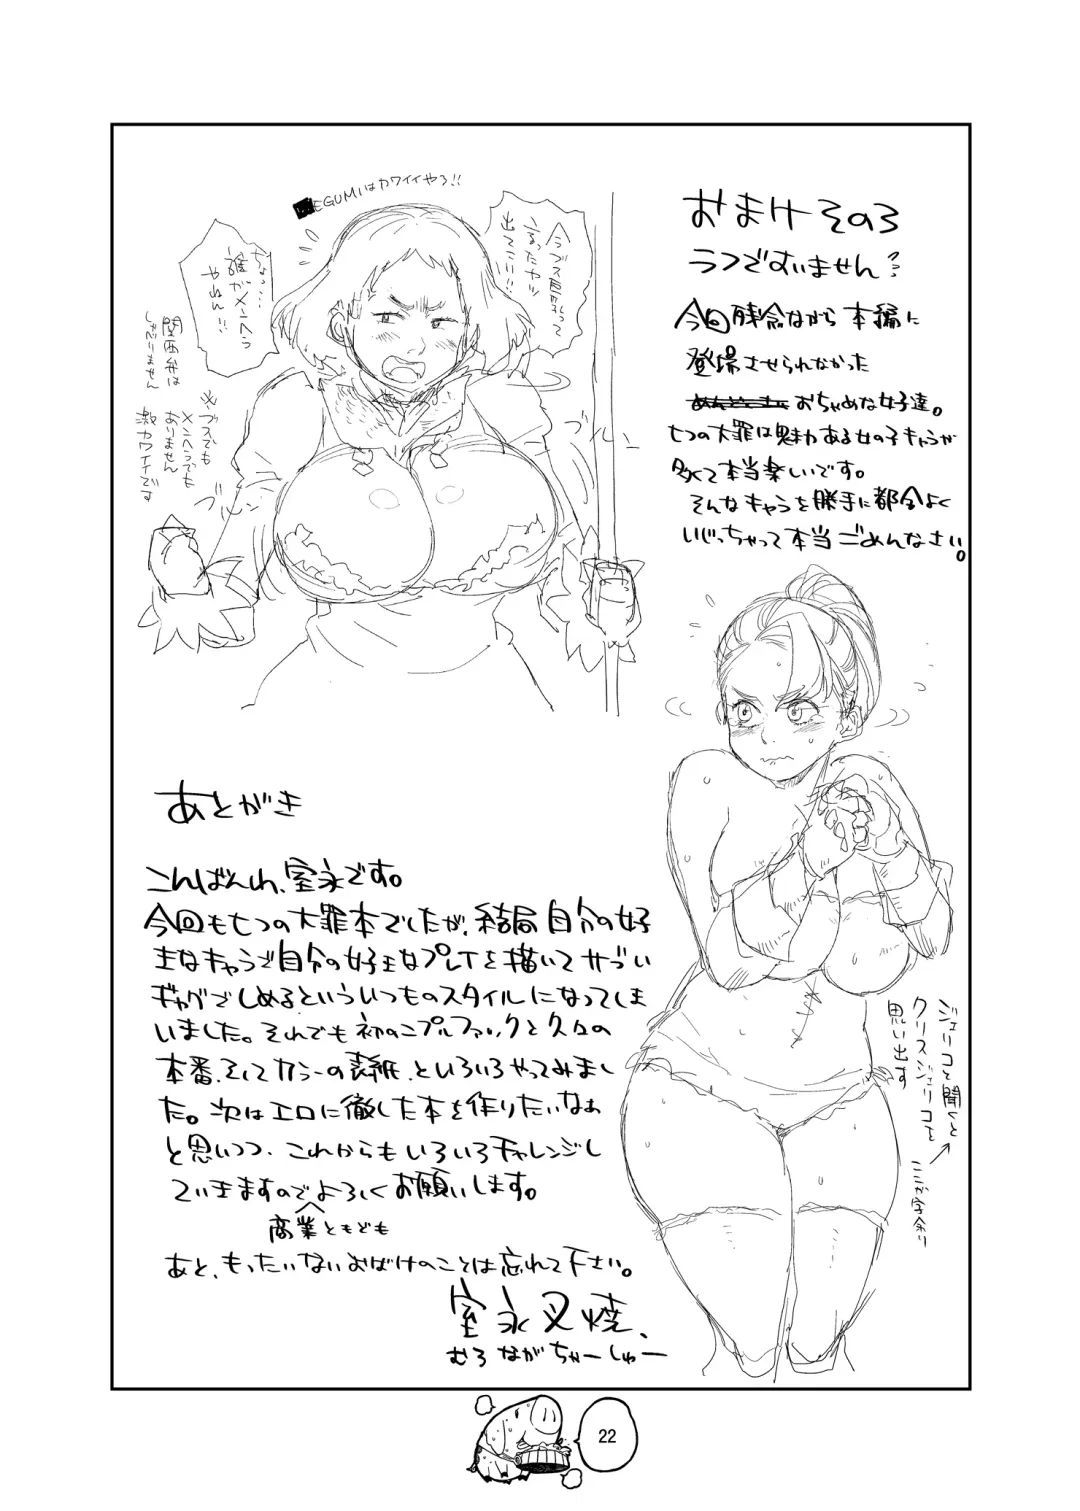 おまけその3
ラフですいません?
今回残念ながら本編に
登場させられなかった
おちゃめな女子達。
七つの大罪は魅力ある女の子キャラが
多くて本当楽しいです。
そんなキャラを勝手に都合よく
いじっちゃって本当ごめんなさい。
EGUMIはカワイイやろ!!
今ブス巨乳って
言ったヤツ
出てこい!!
誰がメンヘラ
やねん!!
関西弁は
しゃべりません
※ブスでも
メンヘラでも
ありません
激カワイイです
ブルン
ブルン
ジェリコと聞くと
クリスジェリコを
思い出す
ここが字余り
あとがき
こんばんわ、室永です。
今回も七つの大罪本でしたが、結局自分の好
きなキャラで自分の好きなプレイを描いてサブい
ギャグでしめるといういつものスタイルになってしま
いました。それでも初のニプルファックと久々の
本番、そしてカラーの表紙、といろいろやってみまし
た。次はエロに徹した本を作りたいなぁ
と思いつつ、これからもいろいろチャレンジし
ていきますのでよろしくお願いします。
商業ともども
あと、もったいないおばけのことは忘れて下さい。
室永叉焼、
むろながちゃーしゅー
22